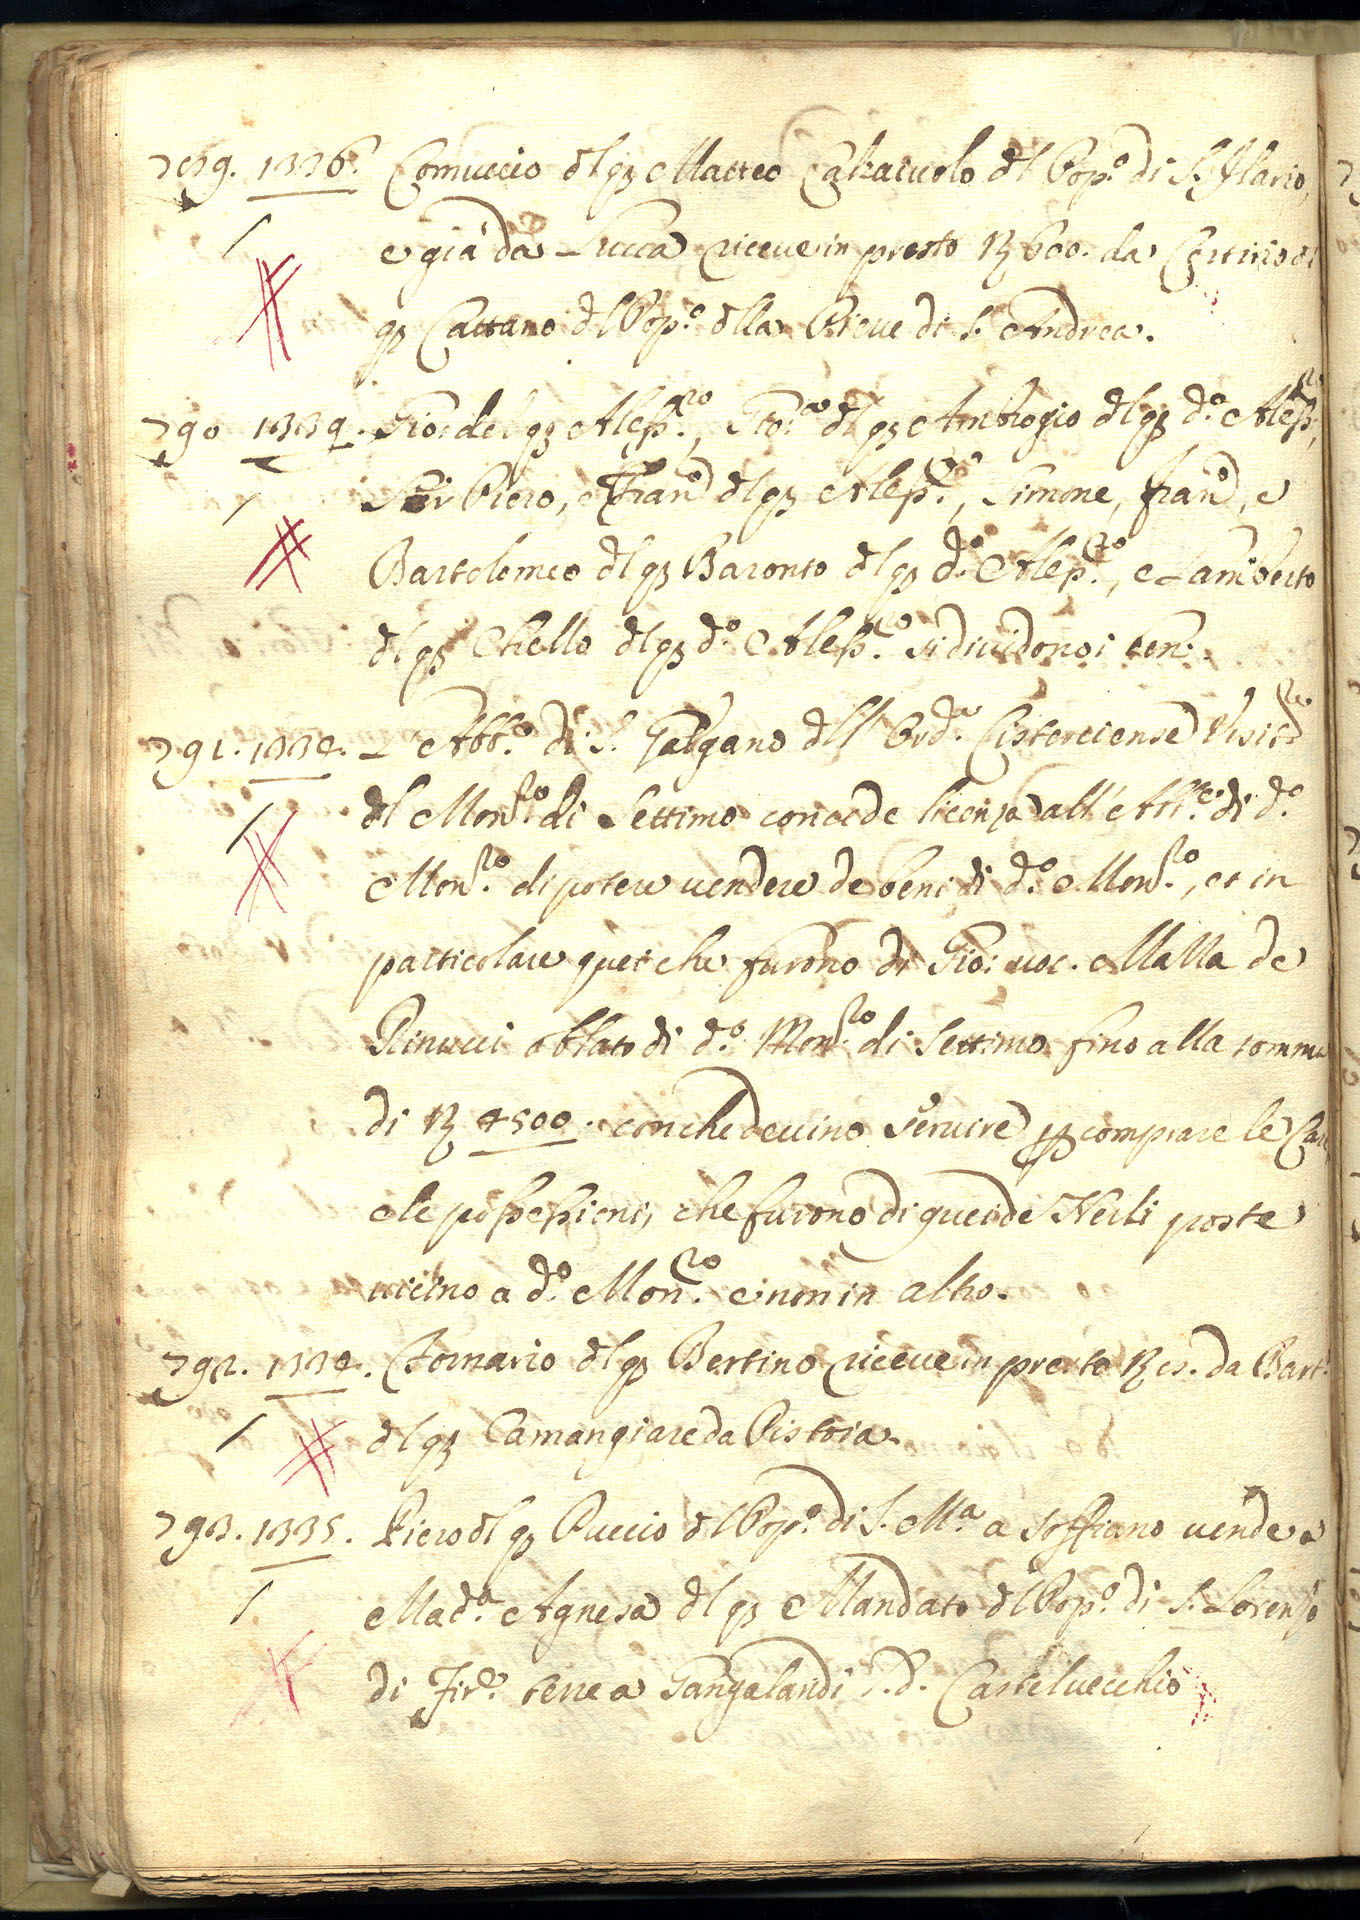 789. 1336. Comuccio dl q3 Matteo Calzaiuolo dl Pop.o di S. Ilario,
e già da Lucca riceve in presto 600. da di
q3 Cattano dl Pop.o dlla Pieve di S. Andrea.
790 1339. Gio: del q3 Aless.ro, dl q3 Ambrogio dl q3 d.o Aless.ro,
Ser Piero, e Fran.o dl q3 Aless.ro, Simone, fran.o, e
Bartolomeo dl q3 Baronto dl q3 d.o Aless.ro, e Lamberto
dl q3 Chello dl q3 d.o Aless.ro si dividono i ben.
791. 1334. L'Abb.e di S. Galgano dll' Ord.e Cisterciense Visit.re
dl Mon.ro di Settimo concede licenza all' Ab.e di d.o
Mon.ro di potere vendere de beni di d.o Mon.ro, et in
particolare quei che furono di Gio: voc. Malla de
Rinucci oblato di d.o Mon.ro di Settimo fino alla somma
di 4500. con che devino servire p comprare le Case
e le possessioni, che furono di quei de Nerli poste
vicino a d.o Mon.ro e non in altro.
792. 1334. Fornario dl q3 Bertino riceve in presto da Bart.
dl q3 Camangiare da Pistoia.
793. 1335. Piero dl q3 Puccio dl Pop.o di S. M.a a Soffiano vende a
Mad.a Agnesa dl q3 Mandato dl Pop.o di S. Lorenzo
di Fir.e terre a Gangalandi l.d. Castelvecchio